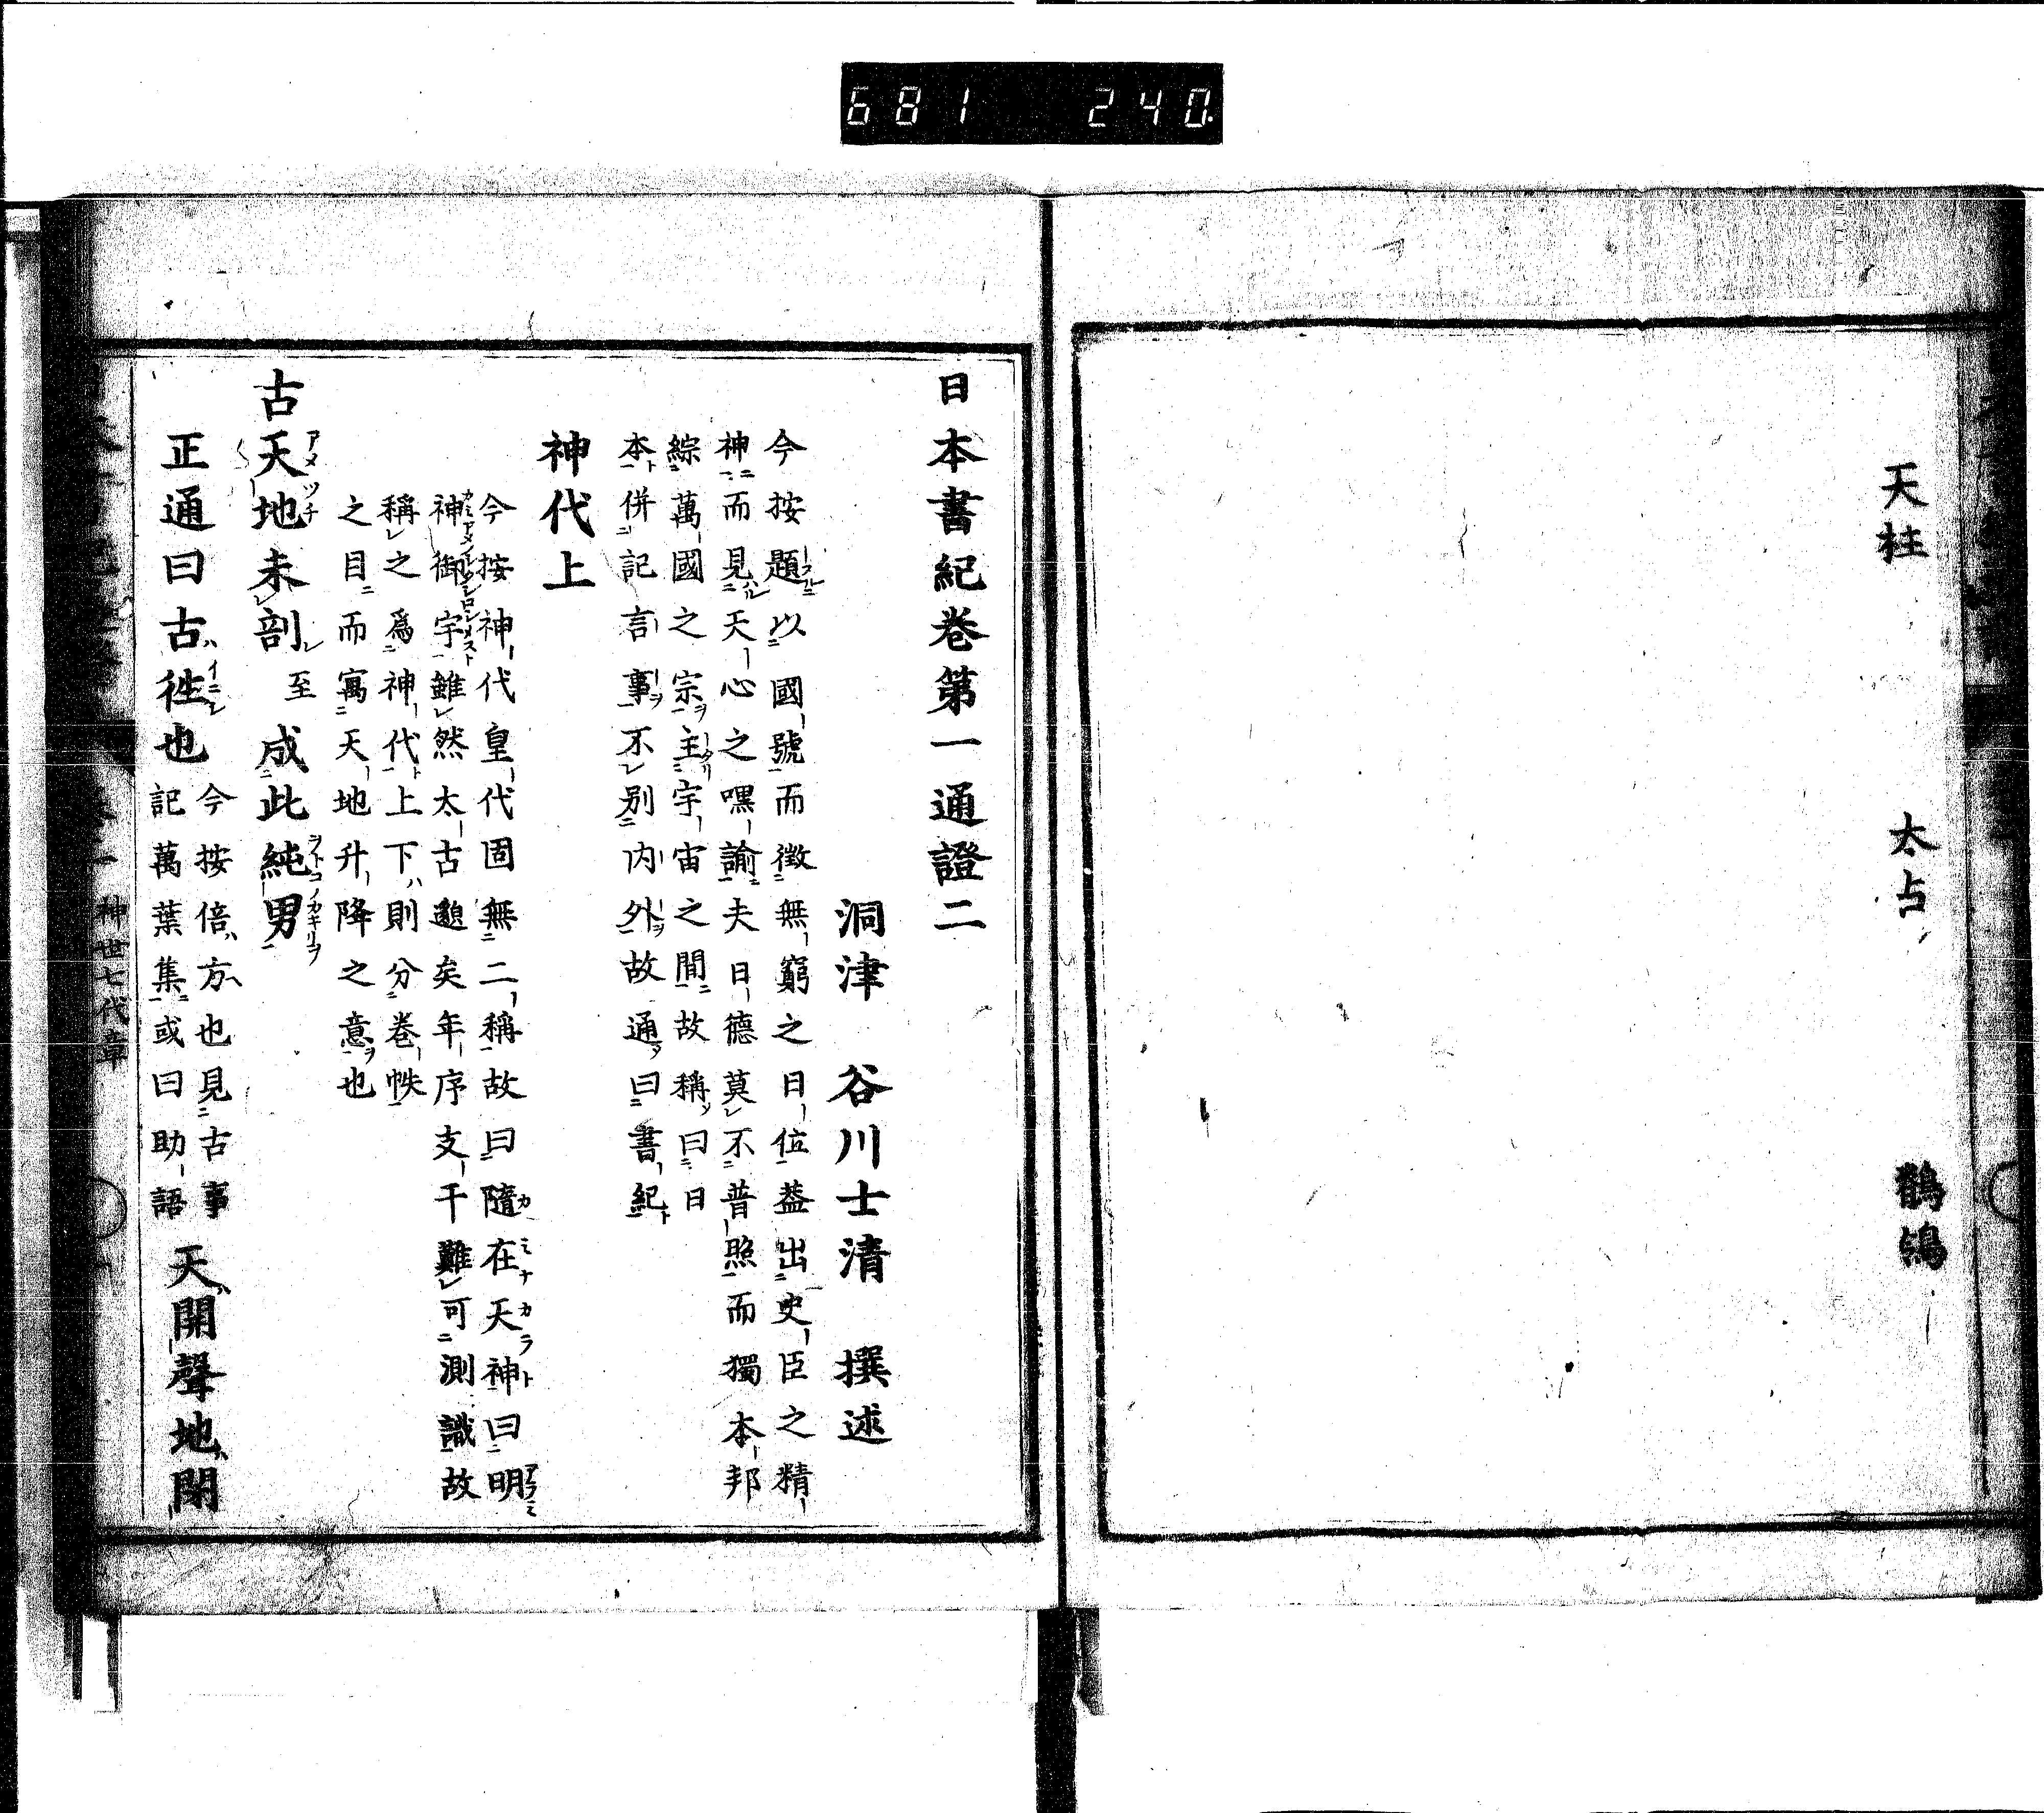 681 240
天柱 太占 鶺鴒
日本書紀巻第一通證二
洞津 谷川士清 撰述
今按題以國號而徵無窮之日位葢出史臣之精
神而見天心之嘿諭夫日德莫不普照而獨本邦
綜萬國之宗主宇宙之間故稱曰日
本併記言事不別内外故通曰書紀
神代上
今按神代皇代固無二稱故曰隨在天神曰明
神御宇雖然太古邈矣年序支干難可測識故
稱之爲神代上下則分巻帙
之目而寓天地升降之意也
古天地未剖至成此純男
正通曰古徃也今按倍方也見古事
記萬葉集或曰助語天開聲地閉
神世七代章